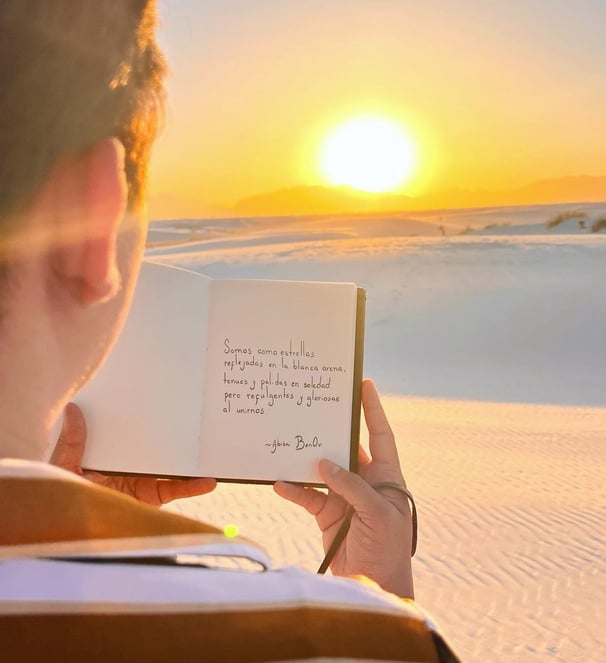 Somos como estrellas
reflejadas en la blanca arena,
tenues y palidas en soledad
pero refulgentes y gloriosas
al unirnos.
BenOr